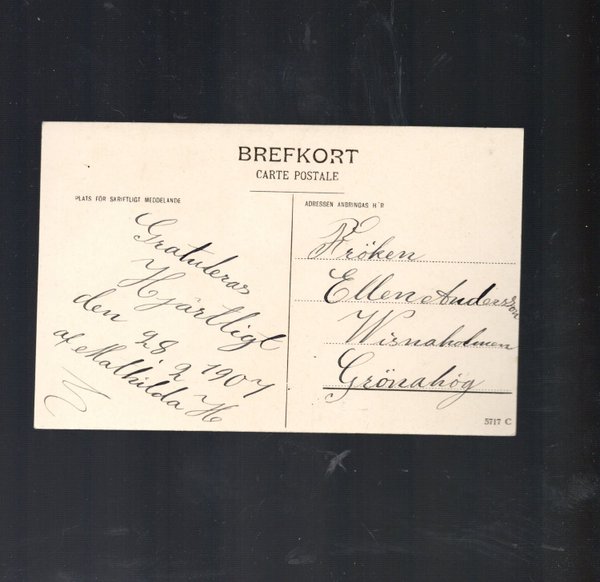 BREFKORT
CARTE POSTALE
PLATS FÖR SKRIFTLIGT MEDDELANDE
Gratuleras
Hjärtligt
den 28 2 1907
af Mathilda H
ADRESSEN ANBRINGAS HÄR
Fröken
Ellen Andersson
Wisnaholmen
Grönahög
5717 C